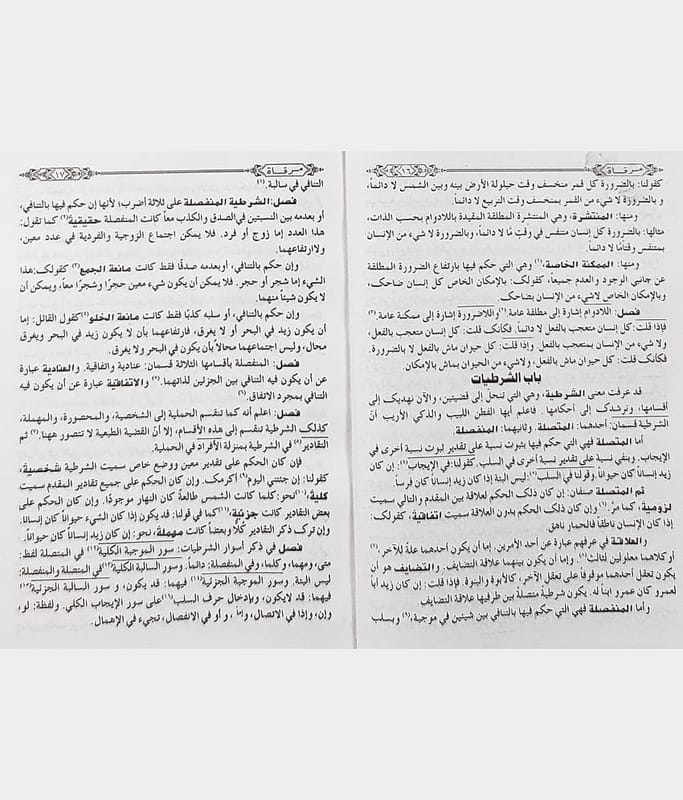 مرقاة
١٦
كقولنا: بالضرورة كل قمر منخسف وقت حيلولة الأرض بينه وبين الشمس لا دائماً،
و بالضرورة لا شيء من القمر بمنخسف وقت التربيع لا دائماً.
ومنها: المنتشرة، وهي المنتشرة المطلقة المقيدة باللادوام بحسب الذات،
مثالها: بالضرورة كل إنسان متنفس في وقتٍ مّا لا دائماً، وبالضرورة لا شيء من الإنسان
بمتنفس وقتاًما لا دائماً.
ومنها: الممكنة الخاصة،(١) وهي التي حكم فيها بارتفاع الضرورة المطلقة
عن جانبي الوجود والعدم جميعاً، كقولك: بالإمكان الخاص كل إنسان ضاحك،
وبالإمكان الخاص لاشيء من الإنسان بضاحك.
فصل: اللادوام إشارة إلى مطلقة عامة(٢) واللاضرورة إشارة إلى ممكنة عامة(٣)
فإذا قلت: كل إنسان متعجب بالفعل لا دائماً. فكأنك قلت: كل إنسان متعجب بالفعل،
ولا شيء من الإنسان بمتعجب بالفعل. وإذا قلت: كل حيوان ماش بالفعل لا بالضرورة.
فكأنك قلت: كل حيوان ماش بالفعل، ولاشيء من الحيوان بماش بالإمكان.
باب الشرطيات
قد عرفت معنى الشرطية، وهي التي تنحل إلى قضيتين، والآن نهديك إلى
أقسامها، ونرشدك إلى أحكامها. فاعلم أيها الفطن اللبيب والذكي الأريب أنّ
الشرطية قسمان: أحدهما: المتصلة، وثانيهما: المنفصلة.
أما المتصلة فهي التي حكم فيها بثبوت نسبة على تقدير ثبوت نسبة أخرى في
الإيجاب، وبنفي نسبة على تقدير نسبة أخرى في السلب. كقولنا: في الإيجاب: إن كان
زيد إنساناً كان حيواناً. وقولنا في السلب: ليس البتة إذا كان زيد إنساناً كان فرساً.
ثم المتصلة صنفان: إن كان ذلك الحكم لعلاقة بين المقدم والتالي سميت
لزومية، كما مرّ. وإن كان ذلك الحكم بدون العلاقة سميت اتفاقية، كقولك:
إذا كان الإنسان ناطقاً فالحمار ناهق.
والعلاقة في عرفهم عبارة عن أحد الأمرين. إما أن يكون أحدهما علة للآخر،
أو كلاهما معلولين لثالث. وإما أن يكون بينهما علاقة التضايف. والتضايف هو أن
يكون تعقل أحدهما موقوفاً على تعقل الآخر، كالأبوة والبنوة. فإذا قلت: إن كان زيد أباً
لعمرو كان عمرو ابناً له. يكون شرطية متصلة بين طرفيها علاقة التضايف
وأما المنفصلة فهي التي حكم فيها بالتنافي بين شيئين في موجبة، وبسلب
مرقاة
١٧
التنافي في سالبة.
فصل: الشرطية المنفصلة على ثلاثة أضرب؛ لأنها إن حكم فيها بالتنافي،
أو بعدمه بين النسبتين في الصدق والكذب معاً كانت المنفصلة حقيقية كما تقول:
هذا العدد إما زوج أو فرد. فلا يمكن اجتماع الزوجية والفردية في عدد معين،
ولاارتفاعهما.
وإن حكم بالتنافي، أوبعدمه صدقًا فقط كانت مانعة الجمع كقولك: هذا
الشيء إما شجر أو حجر. فلا يمكن أن يكون شيء معين حجرًا وشجرًا معاً، ويمكن أن
لا يكون شيئاً منهما.
وإن حكم بالتنافي، أو سلبه كذبًا فقط كانت مانعة الخلو كقول القائل: إما
أن يكون زيد في البحر أو لا يغرق، فارتفاعهما بأن لا يكون زيد في البحر ويغرق
محال، وليس اجتماعهما محالاً بأن يكون في البحر ولا يغرق.
فصل: المنفصلة بأقسامها الثلاثة قسمان: عنادية واتفاقية. والعنادية عبارة
عن أن يكون فيه التنافي بين الجزئين لذاتهما. والاتفاقية عبارة عن أن يكون فيه
التنافي بمجرد الاتفاق.
فصل: اعلم أنه كما تنقسم الحملية إلى الشخصية، والمحصورة، والمهملة،
كذلك الشرطية تنقسم إلى هذه الأقسام، إلا أنّ القضية الطبعية لا تتصور ههنا. ثم
التقادير في الشرطية بمنزلة الأفراد في الحملية.
فإن كان الحكم على تقدير معين ووضع خاص سميت الشرطية شخصية،
كقولنا: إن جئتني اليوم أكرمك. وإن كان الحكم على جميع تقادير المقدم سميت
كلية، نحو: كلما كانت الشمس طالعةً كان النهار موجودًا. وإن كان الحكم على
بعض التقادير كانت جزئية، كما في قولنا: قد يكون إذا كان الشيء حيواناً كان إنسانا.
وإن ترك ذكر التقادير كُلاًّ وبعضاً كانت مهملة، نحو: إن كان زيد إنساناً كان حيواناً.
فصل في ذكر أسوار الشرطيات: سور الموجبة الكلية في المتصلة لفظ:
متى، ومهما، وكلما، وفي المنفصلة: دائماً. وسور السالبة الكلية في المتصلة والمنفصلة:
ليس البتة. وسور الموجبة الجزئية فيهما: قد يكون، و سور السالبة الجزئية
فيهما: قد لايكون، وبإدخال حرف السلب على سور الإيجاب الكلي. ولفظة: لو،
وإن، وإذا في الاتصال، وإما، و أو في الانفصال، تجيء في الإهمال.